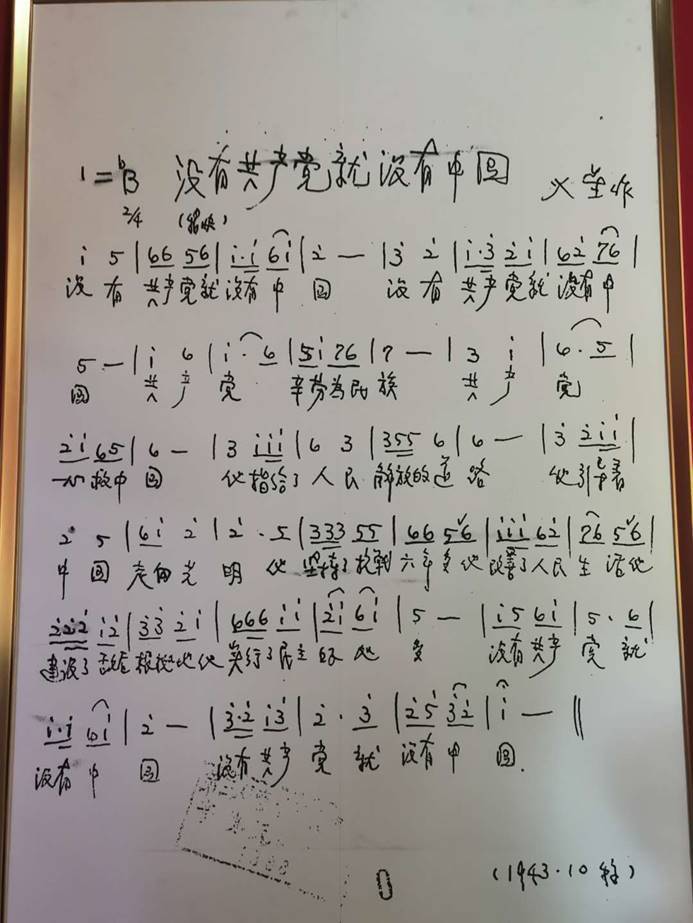 1=ᵇB 没有共产党就没有中国 火星作
2/4 (稍快)
i 5 | 66 56 | i·i 6i | 2̇ — | 3̇ 2̇ | i·3̇ 2̇i | 62̇ 76 |
没有 共产党就 没有中 国 没有 共产党就 没有中
5 — | i 6 | i·6 | 5i 76 | 7 — | 3 i | 6·5 |
国 共产 党 辛劳为民族 共产 党
2̇i 65 | 6 — | 3 iii | 6 3 | 355 6 | 6 — | 3̇ 2̇ii |
一心救中国 他指给了人民 解放的道路 他引导着
2̇ 5 | 6i 2̇ | 2̇·5 | 333 55 | 66 56 | iii 62̇ | 76 56 |
中国走向光明 他坚持了抗战六年多他改善了人民生活他
2̇2̇2̇ i2̇ | 3̇3̇ 2̇i | 666 ii | 2̇i 6i | 5 — | i5 6i | 5·6 |
建设了敌后根据地他实行了民主好处多 没有共产党就
i·i 6i | 2̇ — | 3̇·2̇ i3̇ | 2̇·3̇ | 2̇5 3̇2̇ | i — ‖
没有中 国 没有共产党 就 没有中 国.
(1943·10 )